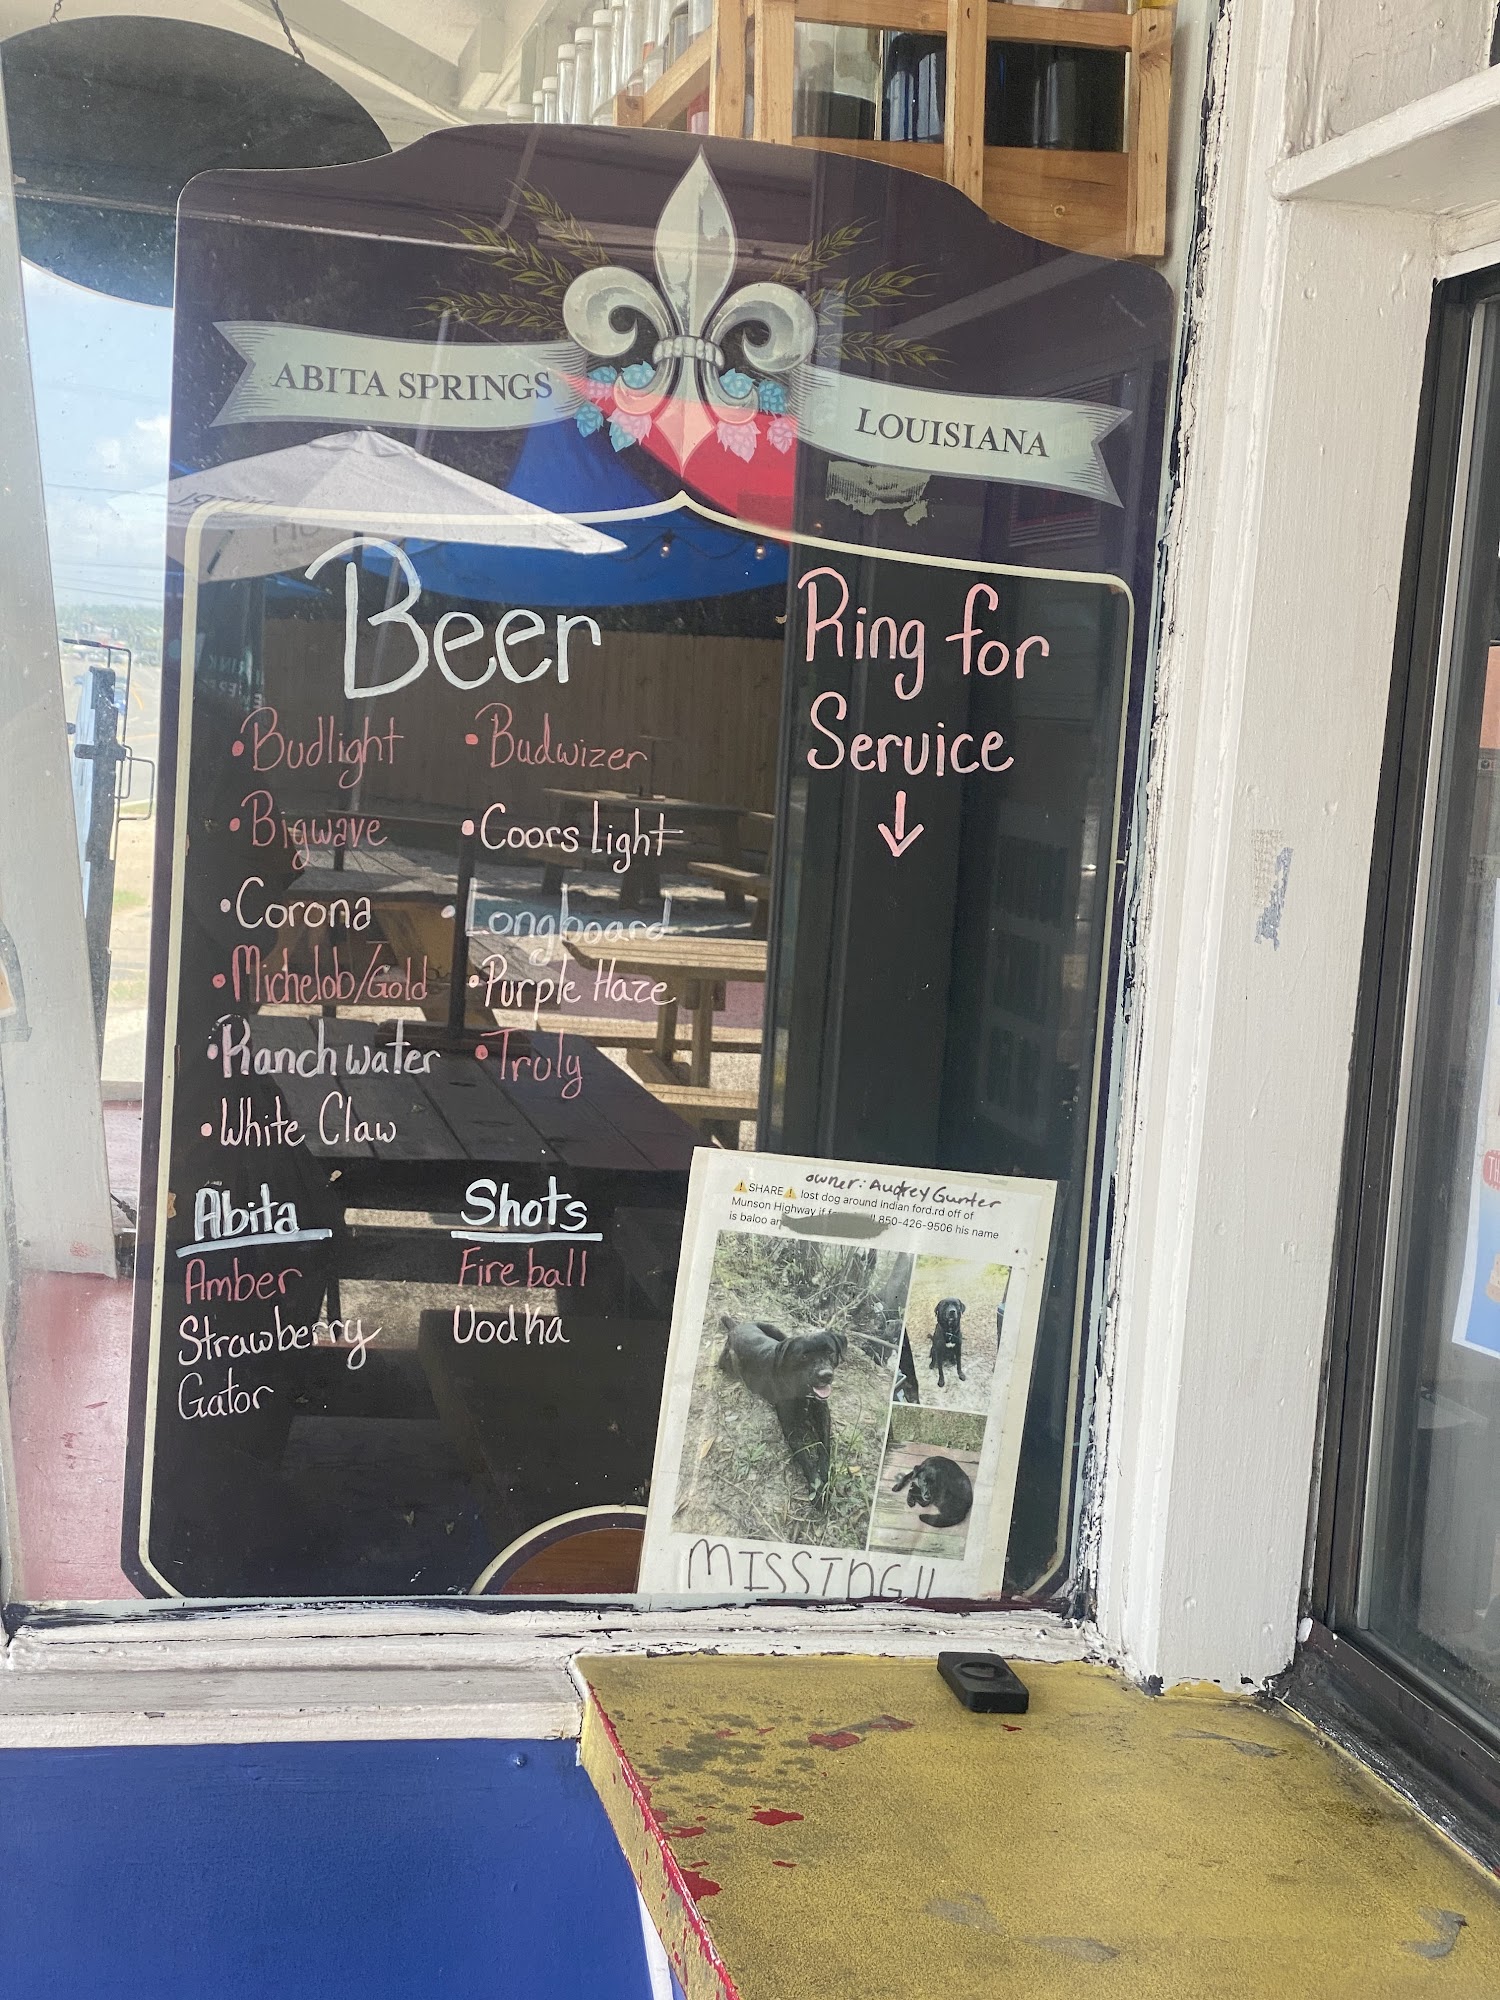 ABITA SPRINGS
LOUISIANA
Beer
• Budlight
• Budwizer
• Bigwave
• Coors light
• Corona
• Longboard
• Michelob/Gold
• Purple Haze
• Ranch water
• Truly
• White Claw
Abita
Amber
Strawberry
Gator
Shots
Fire ball
Vodka
Ring for
Service
↓
owner: Audrey Gunter
⚠SHARE⚠ lost dog around indian ford.rd off of
Munson Highway if 850-426-9506 his name
is baloo
MISSING!!